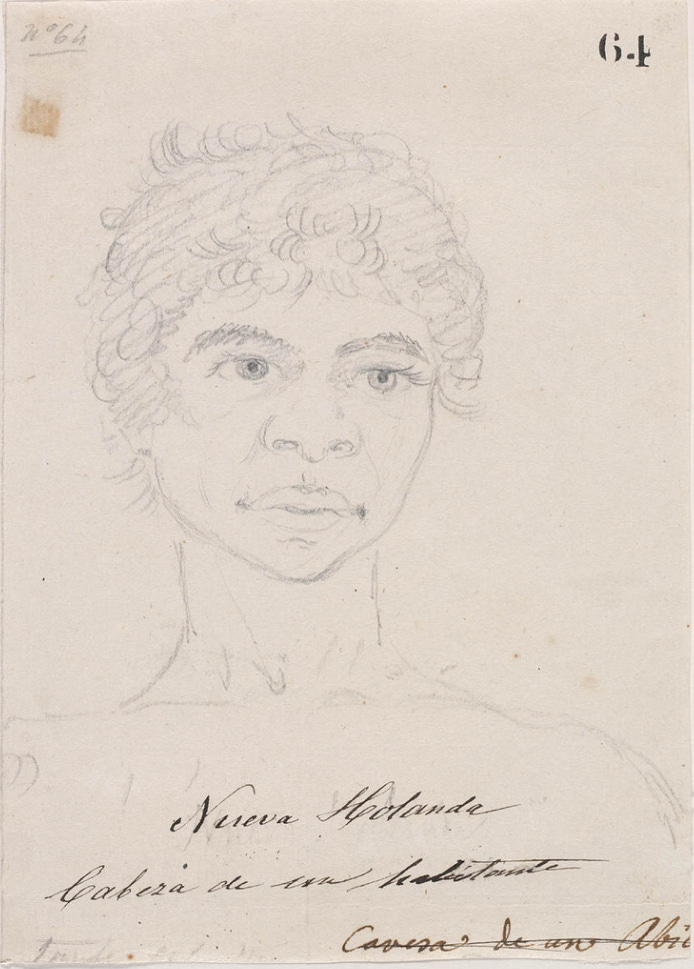 Nº 64
64
Nueva Holanda
Cabeza de un habitante
Cavesa de uno Abi